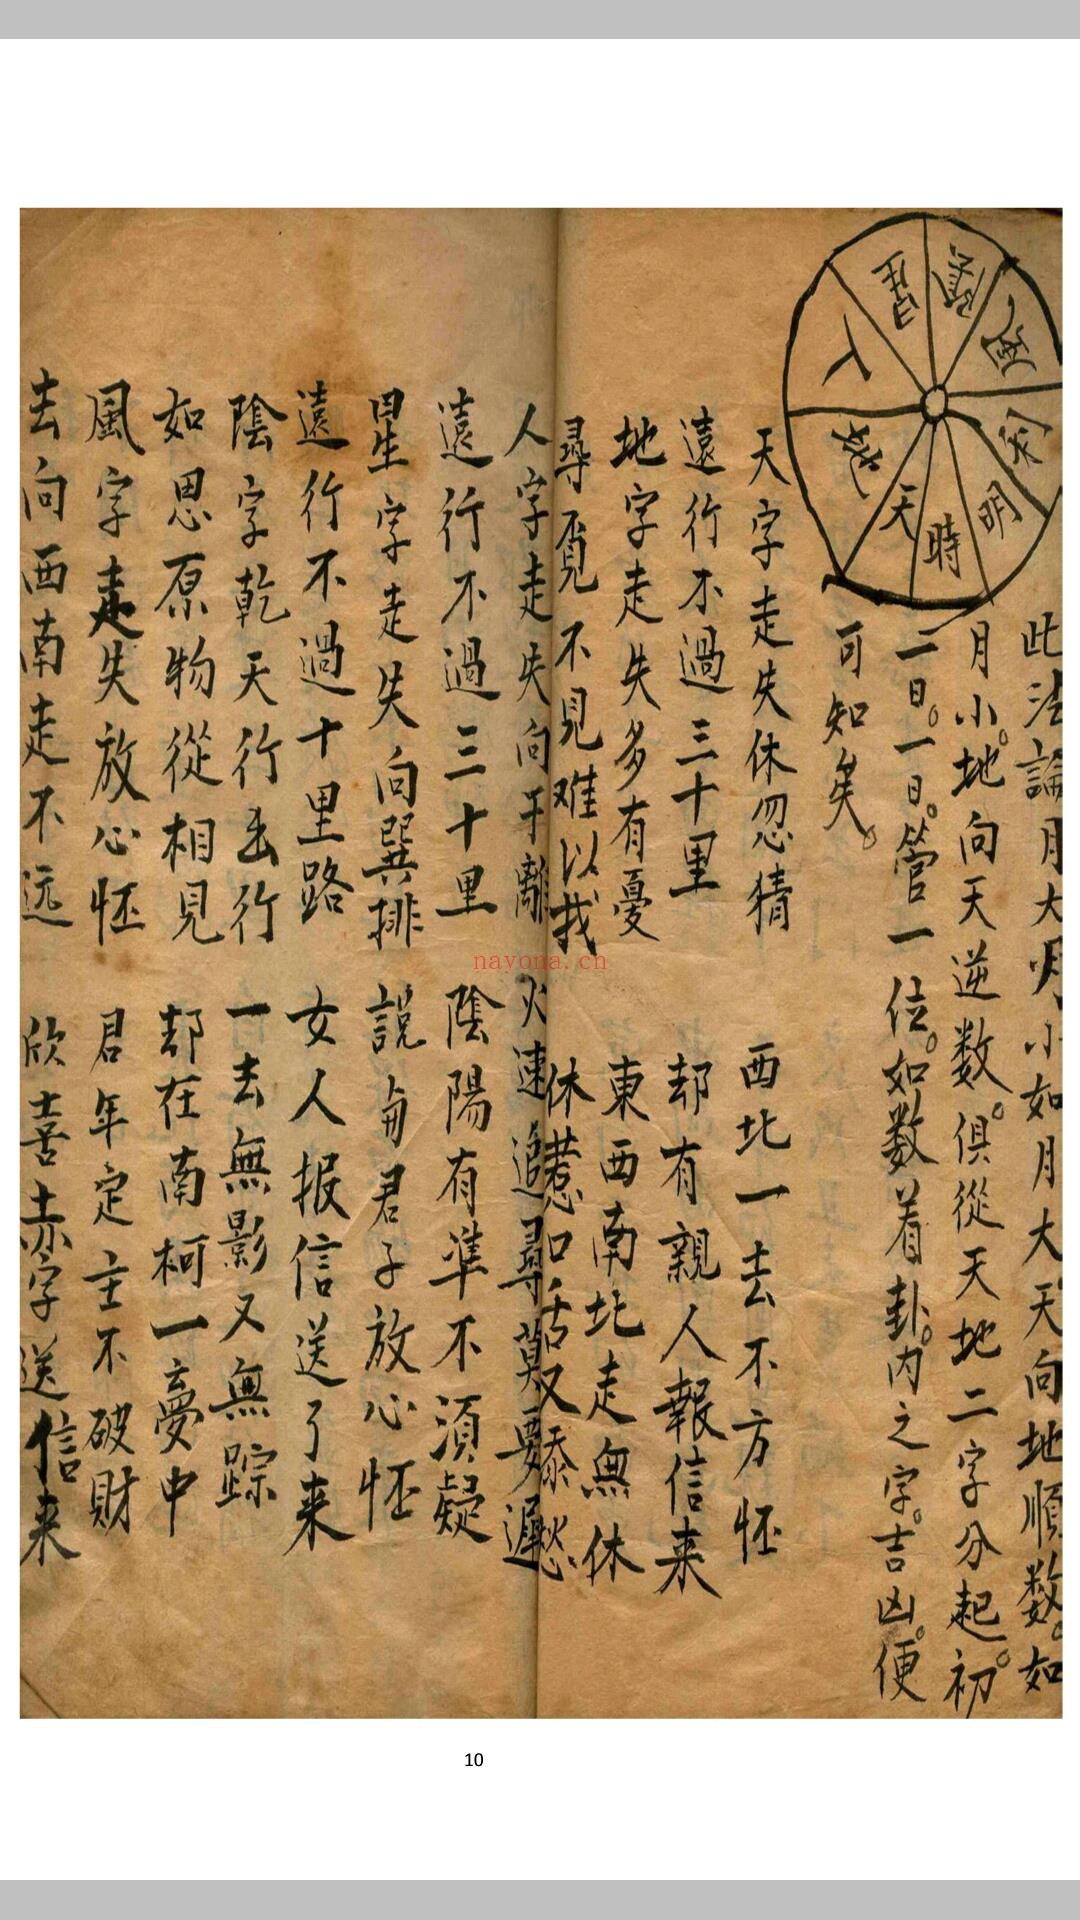 此法論月大月小如月大天向地順数。如
月小。地向天逆数。俱從天地二字分起。初
二日。一日。管一位。如数着卦。内之字。吉凶。便
可知矣。
人 星 陰 風
天 時 明
天字走失休忽猜 西北一去不方怌
遠行不過三十里 却有親人報信来
地字走失多有憂 東西南北走無休
尋覓不見难以找 休惹口舌又添愁
人字走失向于離 火速追尋莫要遲
遠行不過三十里 陰陽有準不須疑
星字走失向巽排 説與君子放心怌
遠行不過十里路 女人报信送了来
陰字乾天行去行 一去無影又無踪
如思原物從相見 却在南柯一夢中
風字走失放心怌 君年定主不破財
去向西南走不远 欣喜赤字送信来
nayona.cn
10